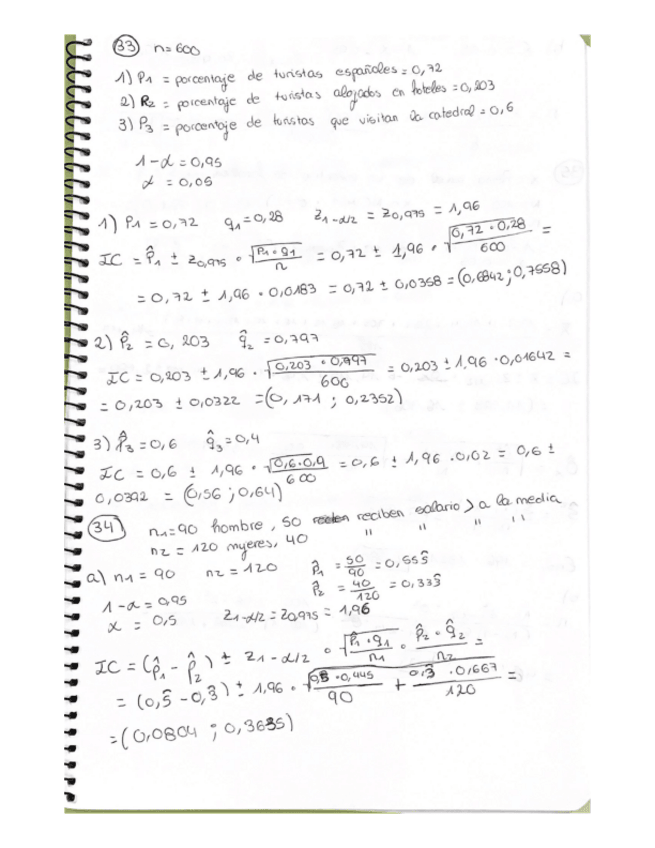 33) n=600
1) P1 = porcentaje de turistas españoles = 0,72
2) P2 = porcentaje de turistas alojados en hoteles = 0,203
3) P3 = porcentaje de turistas que visitan la catedral = 0,6
1-α = 0,95
α = 0,05
1) P1 = 0,72 q1 = 0,28 Z1-α/2 = Z0,975 = 1,96
IC = P̂1 ± Z0,975 · √(P1·q1/n) = 0,72 ± 1,96 · √(0,72·0,28/600) =
= 0,72 ± 1,96 · 0,0183 = 0,72 ± 0,0358 = (0,6842; 0,7558)
2) P̂2 = 0,203 q̂2 = 0,797
IC = 0,203 ± 1,96 · √(0,203·0,797/600) = 0,203 ± 1,96 · 0,01642 =
= 0,203 ± 0,0322 = (0,171 ; 0,2352)
3) P̂3 = 0,6 q̂3 = 0,4
IC = 0,6 ± 1,96 · √(0,6·0,4/600) = 0,6 ± 1,96 · 0,02 = 0,6 ±
0,0392 = (0,56 ; 0,64)
34) n1=90 hombre, 50 reciben salario > a la media
n2 = 120 mujeres, 40 " " " "
a) n1 = 90 n2 = 120 P̂1 = 50/90 = 0,555̂
P̂2 = 40/120 = 0,333̂
1-α = 0,95
α = 0,5 Z1-α/2 = Z0,975 = 1,96
IC = (P̂1 - P̂2) ± Z1-α/2 · √(P̂1·q̂1/n1 · P̂2·q̂2/n2) =
= (0,5̂ - 0,3̂) ± 1,96 · √(0,5̂·0,445/90 + 0,3̂·0,667/120) =
= (0,0804 ; 0,3635)